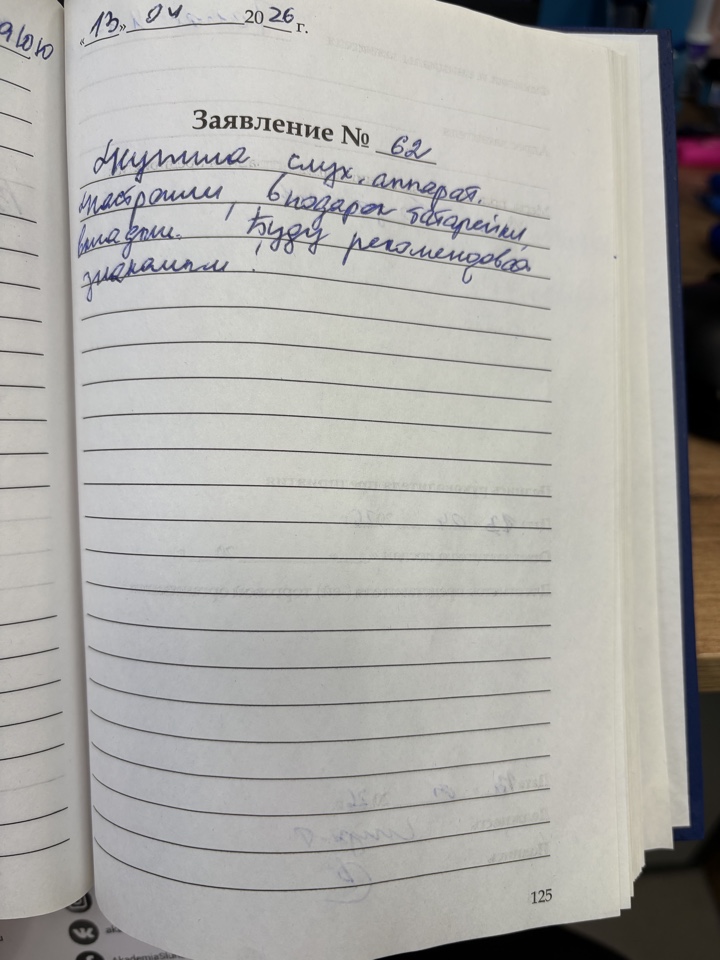 аюю
«13» 04 2026 г.
Заявление № 62
Купила слух. аппарат.
Настроили, в подарок батарейки
вкладыш. Буду рекомендовать
знакомым!
125